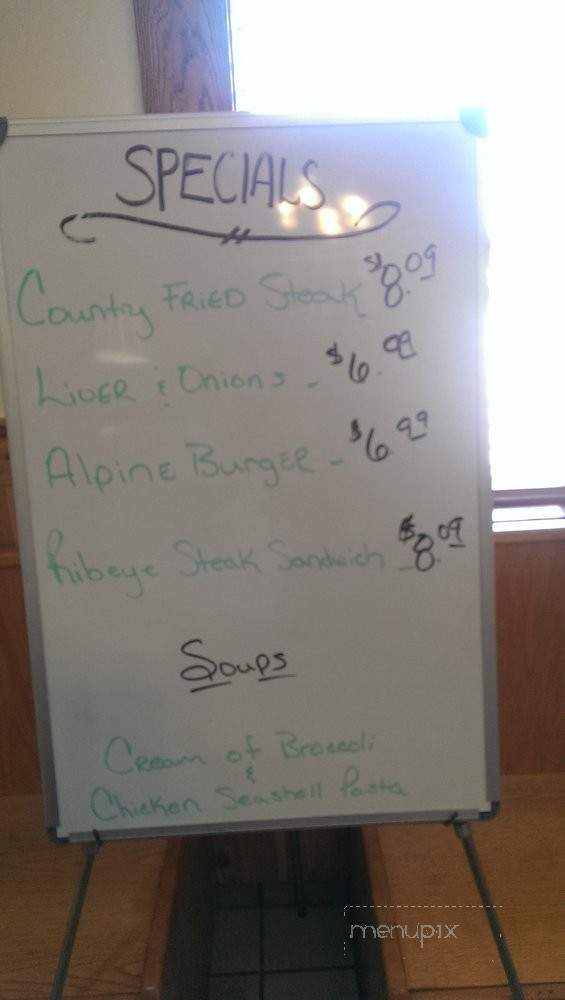 SPECIALS
Country FRIED Steak $8.09
LIVER & Onions - $6.99
Alpine Burger - $6.99
Ribeye Steak Sandwich - $8.09
Soups
Cream of Broccoli
&
Chicken Seashell Pasta
menupix